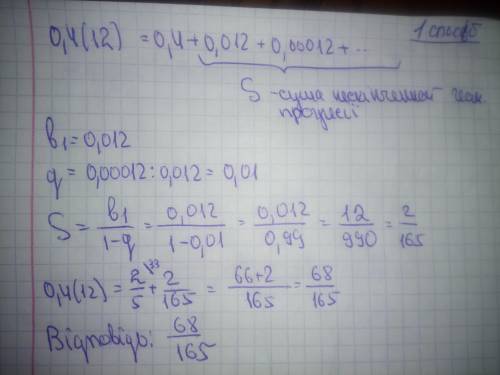 1 спосіб
0,4(12) = 0,4 + 0,012 + 0,00012 + ...
S - сума нескінченної геом.
прогресії
b₁ = 0,012
q = 0,00012 : 0,012 = 0,01
S = b₁/(1-q) = 0,012/(1-0,01) = 0,012/0,99 = 12/990 = 2/165
0,4(12) = 2/5 \33 + 2/165 = (66+2)/165 = 68/165
Відповідь: 68/165